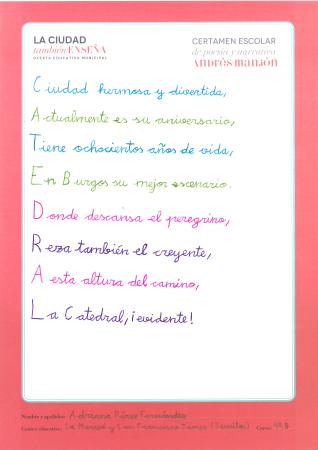 LA CIUDAD
también ENSEÑA
OFERTA EDUCATIVA MUNICIPAL
CERTAMEN ESCOLAR
de poesía y narrativa
Andrés Manjón
Ciudad hermosa y divertida,
Actualmente es su aniversario,
Tiene ochocientos años de vida,
En Burgos su mejor escenario.
Donde descansa el peregrino,
Reza también el creyente,
A esta altura del camino,
La Catedral, ¡evidente!
Nombre y apellidos: Adriana Pérez Fernández
Centro educativo: La Merced y San Francisco Javier (Jesuitas) Curso: 4º B